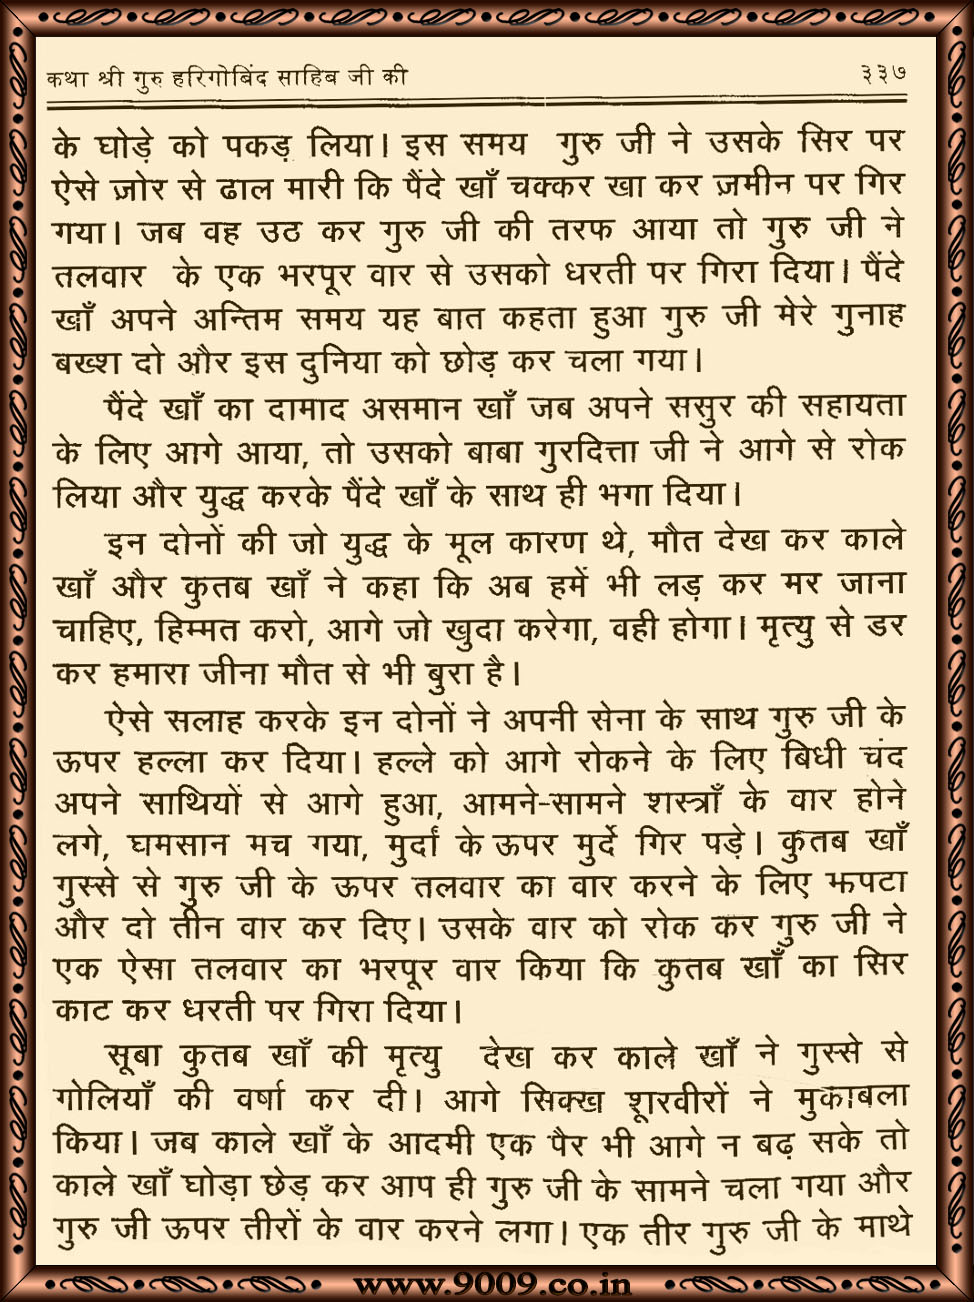 कथा श्री गुरु हरिगोबिंद साहिब जी की ३३७
के घोड़े को पकड़ लिया। इस समय गुरु जी ने उसके सिर पर
ऐसे ज़ोर से ढाल मारी कि पैंदे खाँ चक्कर खा कर ज़मीन पर गिर
गया। जब वह उठ कर गुरु जी की तरफ आया तो गुरु जी ने
तलवार के एक भरपूर वार से उसको धरती पर गिरा दिया। पैंदे
खाँ अपने अन्तिम समय यह बात कहता हुआ गुरु जी मेरे गुनाह
बख्श दो और इस दुनिया को छोड़ कर चला गया।
पैंदे खाँ का दामाद असमान खाँ जब अपने ससुर की सहायता
के लिए आगे आया, तो उसको बाबा गुरदित्ता जी ने आगे से रोक
लिया और युद्ध करके पैंदे खाँ के साथ ही भगा दिया।
इन दोनों की जो युद्ध के मूल कारण थे, मौत देख कर काले
खाँ और कुतब खाँ ने कहा कि अब हमें भी लड़ कर मर जाना
चाहिए, हिम्मत करो, आगे जो खुदा करेगा, वही होगा। मृत्यु से डर
कर हमारा जीना मौत से भी बुरा है।
ऐसे सलाह करके इन दोनों ने अपनी सेना के साथ गुरु जी के
ऊपर हल्ला कर दिया। हल्ले को आगे रोकने के लिए बिधी चंद
अपने साथियों से आगे हुआ, आमने-सामने शस्त्राँ के वार होने
लगे, घमसान मच गया, मुर्दां के ऊपर मुर्दे गिर पड़े। कुतब खाँ
गुस्से से गुरु जी के ऊपर तलवार का वार करने के लिए झपटा
और दो तीन वार कर दिए। उसके वार को रोक कर गुरु जी ने
एक ऐसा तलवार का भरपूर वार किया कि कुतब खाँ का सिर
काट कर धरती पर गिरा दिया।
सूबा कुतब खाँ की मृत्यु देख कर काले खाँ ने गुस्से से
गोलियाँ की वर्षा कर दी। आगे सिक्ख शूरवीरों ने मुकाबला
किया। जब काले खाँ के आदमी एक पैर भी आगे न बढ़ सके तो
काले खाँ घोड़ा छेड़ कर आप ही गुरु जी के सामने चला गया और
गुरु जी ऊपर तीरों के वार करने लगा। एक तीर गुरु जी के माथे
www.9009.co.in